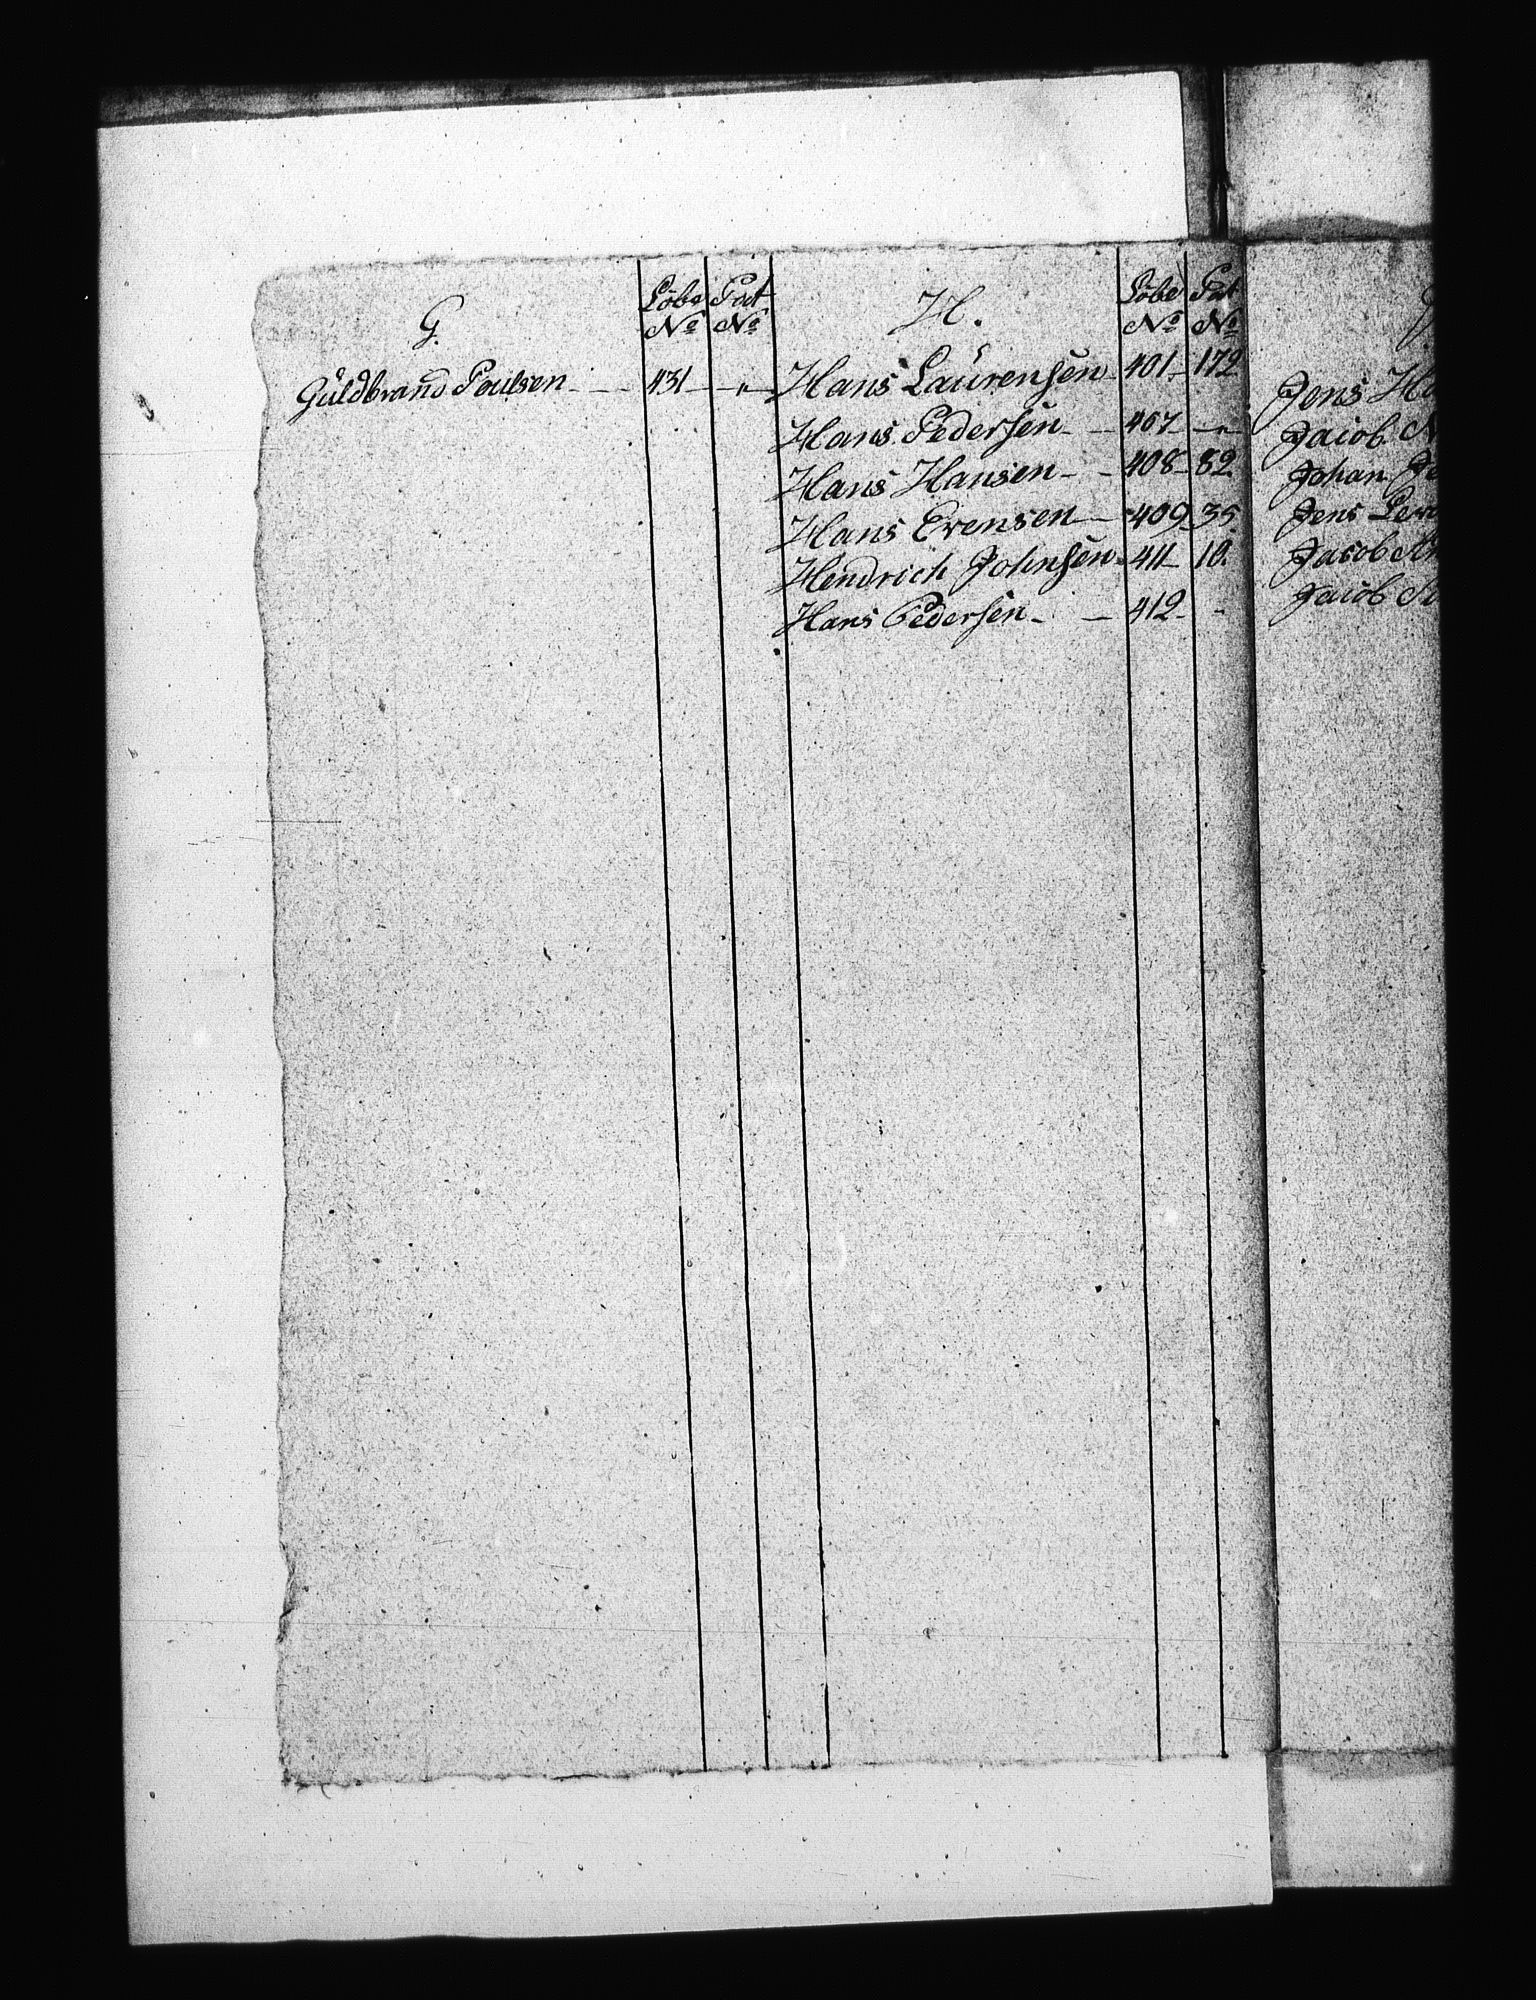 G.
Löbe No
Pat No
Guldbrand Poulsen 431 "
H.
Löbe No
Pat No
Hans Laurensen 401 172
Hans Pedersen 407 "
Hans Hansen 408 82
Hans Evensen 409 35.
Hendrich Johnsen 411 10.
Hans Pedersen 412 -
Jens
Jacob
Johan
Jens
Jacob
Jacob